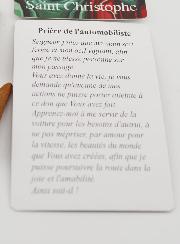 Saint Christophe
Prière de l'automobiliste
Seigneur
et mon œil vigilant, afin
que je ne blesse personne sur
mon passage.
Vous avez donné la vie, je vous
demande qu'aucune de mes
actions ne puisse porter atteinte à
ce don que Vous avez fait.
Apprenez-moi à me servir de la
voiture pour les besoins d'autrui, à
ne pas mépriser, par amour pour
la vitesse, les beautés du monde
que Vous avez créées, afin que je
puisse poursuivre la route dans la
joie et l'amabilité.
Ainsi soit-il !